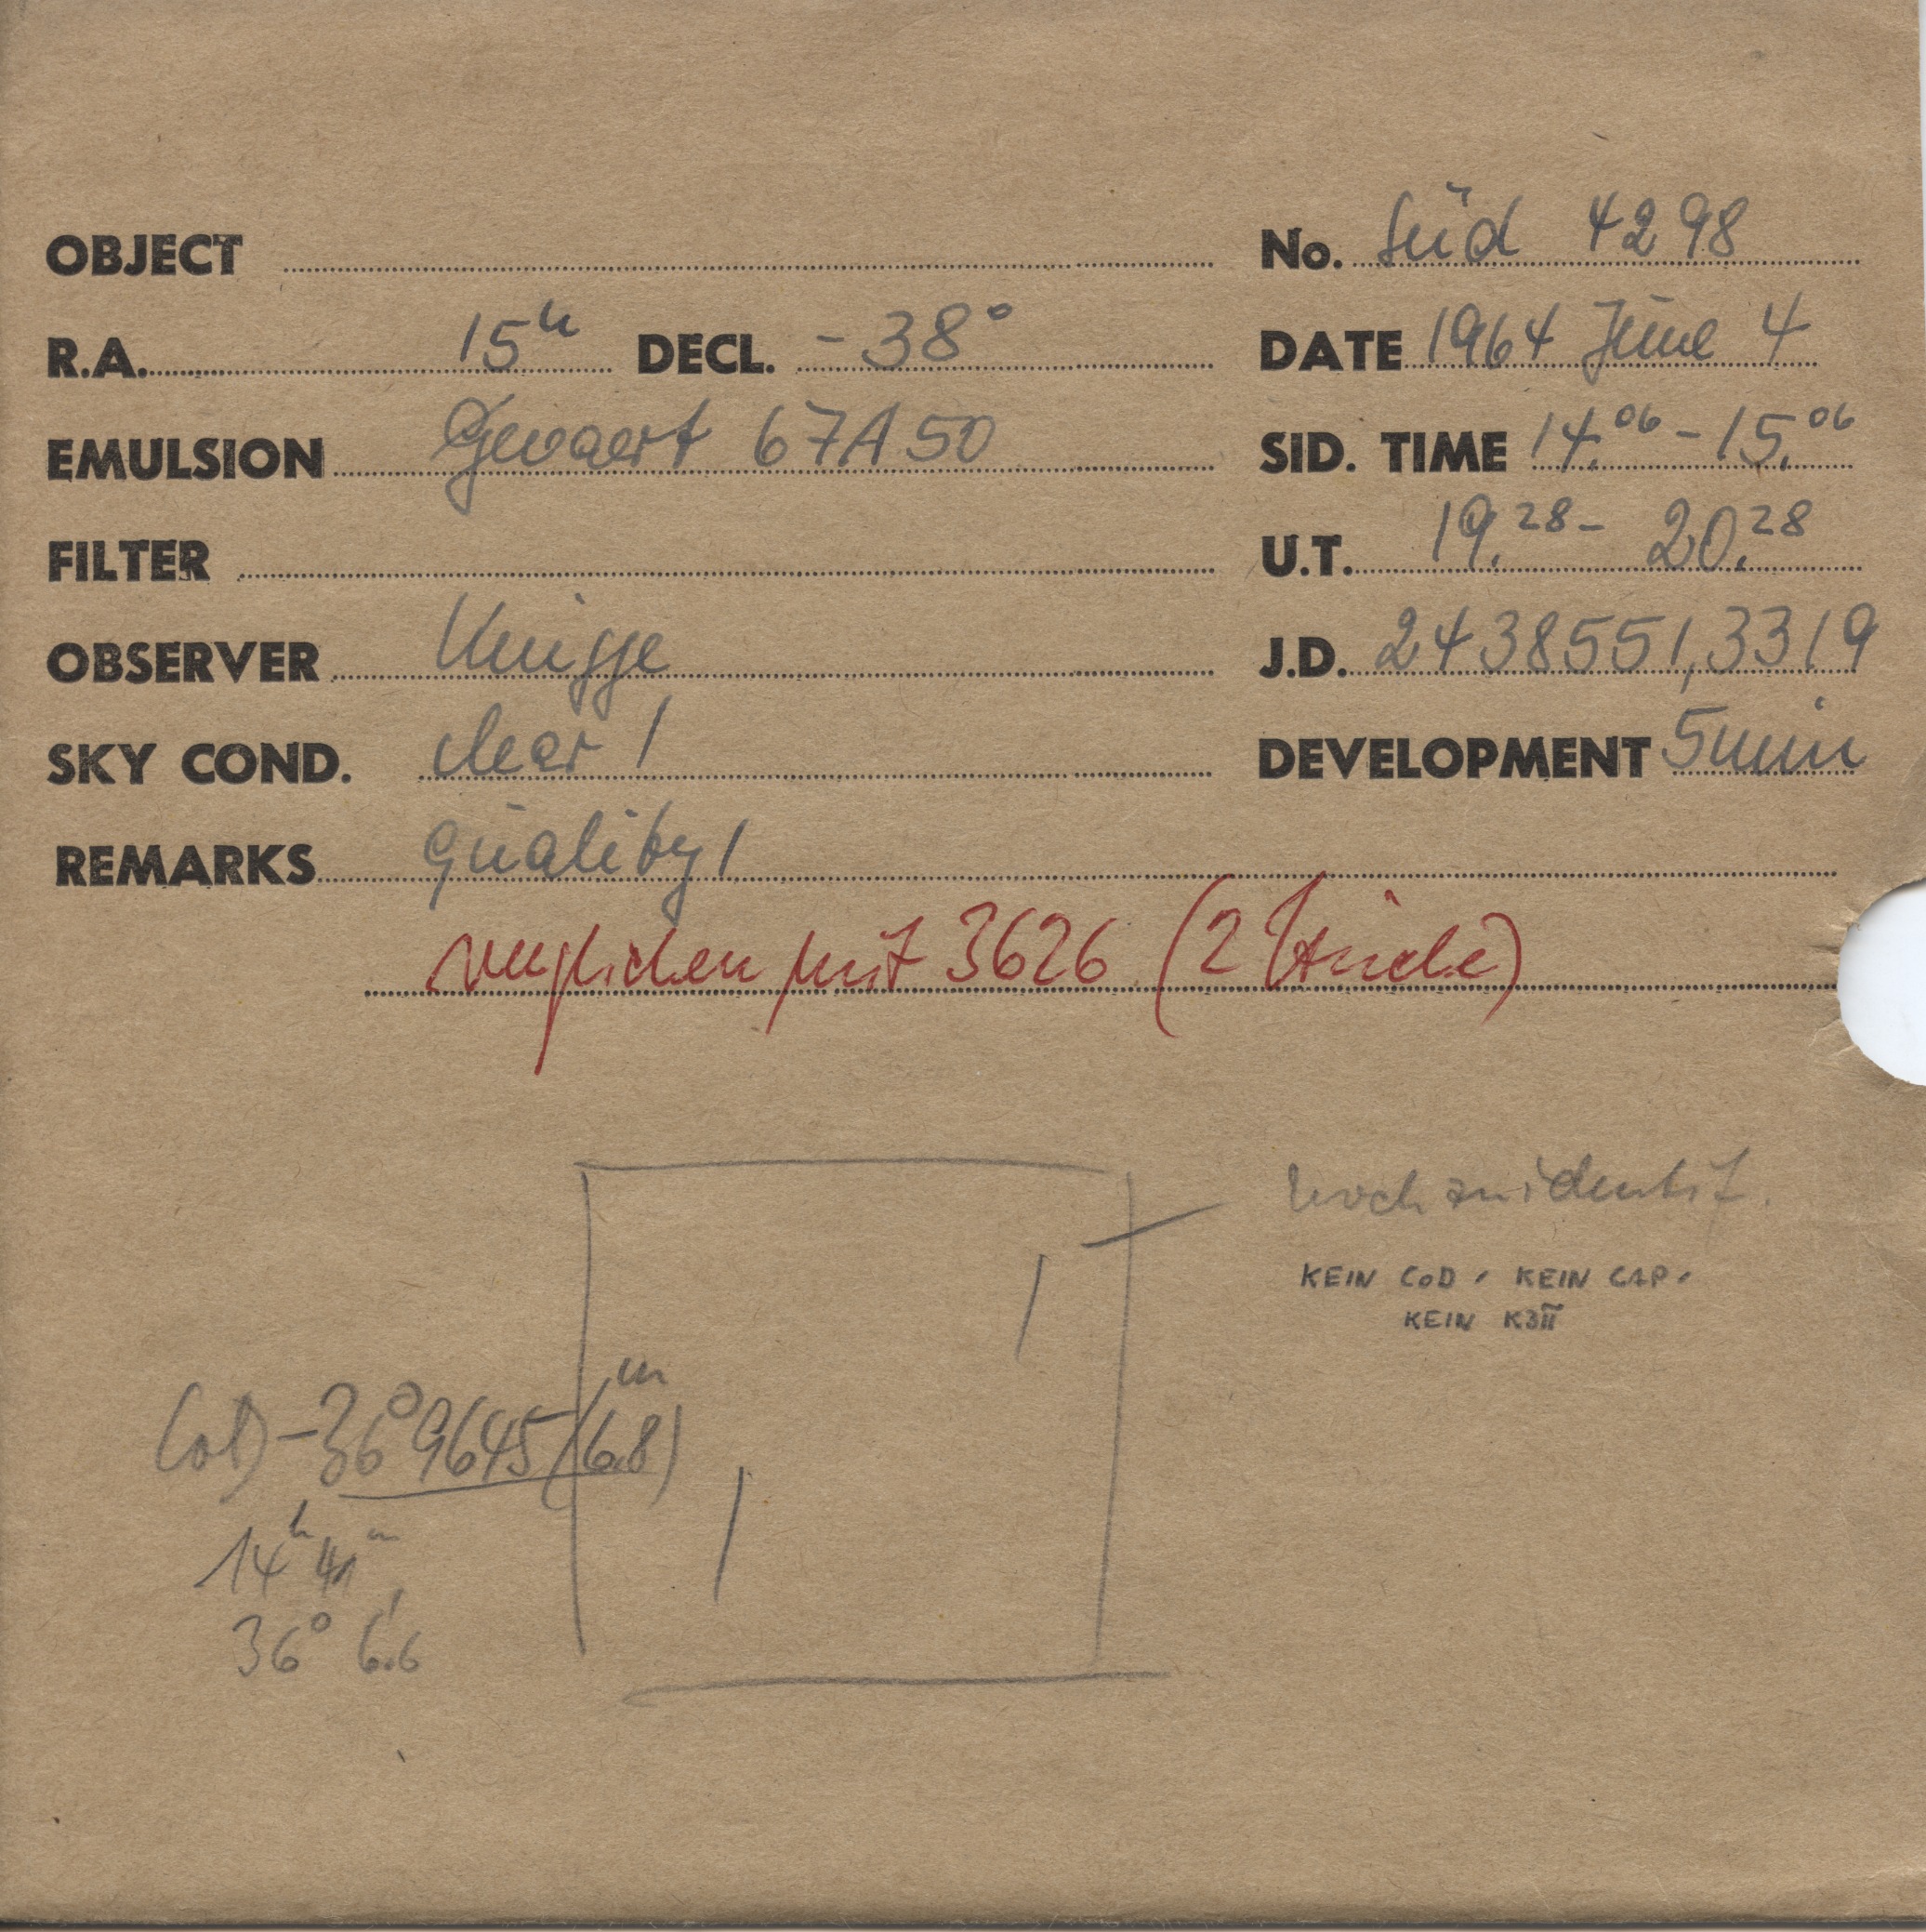 OBJECT
No. Süd 4298
R.A. 15h DECL. -38°
DATE 1964 June 4
EMULSION Gevaert 67A50
SID. TIME 14.06 - 15.06
FILTER
U.T. 19.28 - 20.28
OBSERVER Knigge
J.D. 2438551,3319
SKY COND. clear 1
DEVELOPMENT 5min
REMARKS quality 1
verglichen mit 3626 (2 Striche)
noch zu identif.
KEIN CoD, KEIN CAP,
KEIN K3II
CoD -36°9645 (6.8)m
14h 41m
36° 6.6'